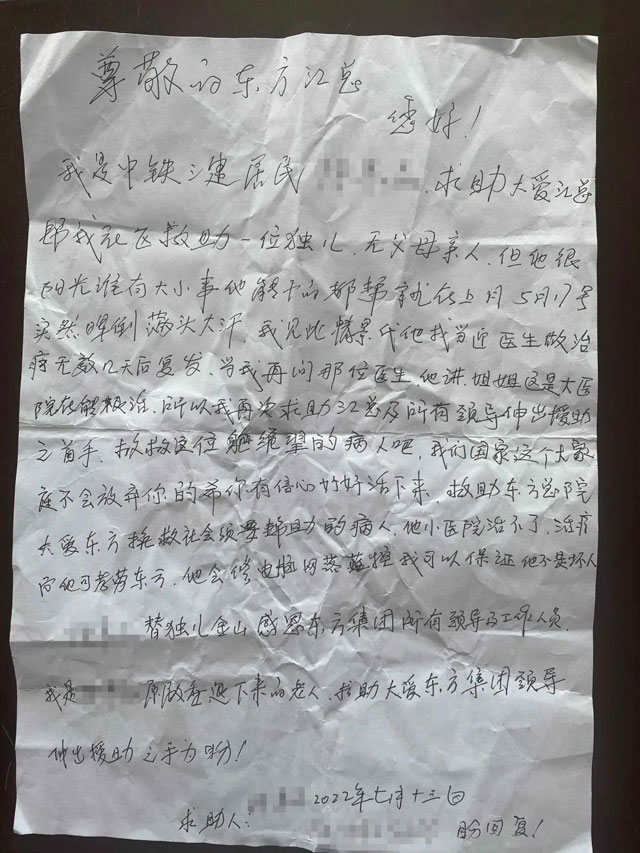 尊敬的东方江总
您好！
我是中铁三建居民 求助大爱江总
帮我社区救助一位独儿，无父母亲人，但他很
阳光谁有大小事他能干的都帮就在上月5月17号
突然晕倒满头大汗，我见此情景代他找当近医生做治
疗无效几天后复发，当我再问那位医生，他讲姐姐这是大医
院在能根治，所以我再次求助江总及所有领导伸出援助
之首手，救救这位绝望的病人吧，我们国家这个大家
庭不会放弃你的希你有信心好好活下来，救助东方总院
大爱东方挽救社会须要帮助的病人，他小医院治不了，治疗
后他可 东方，他会修电脑网落 我可以保证他不是坏人
替独儿金山感恩东方集团所有领导及工作人员，
我是 原 退下来的老人，求助大爱东方集团领导
伸出援助之手为盼！
2022年七月十三日
求助人： 盼回复！